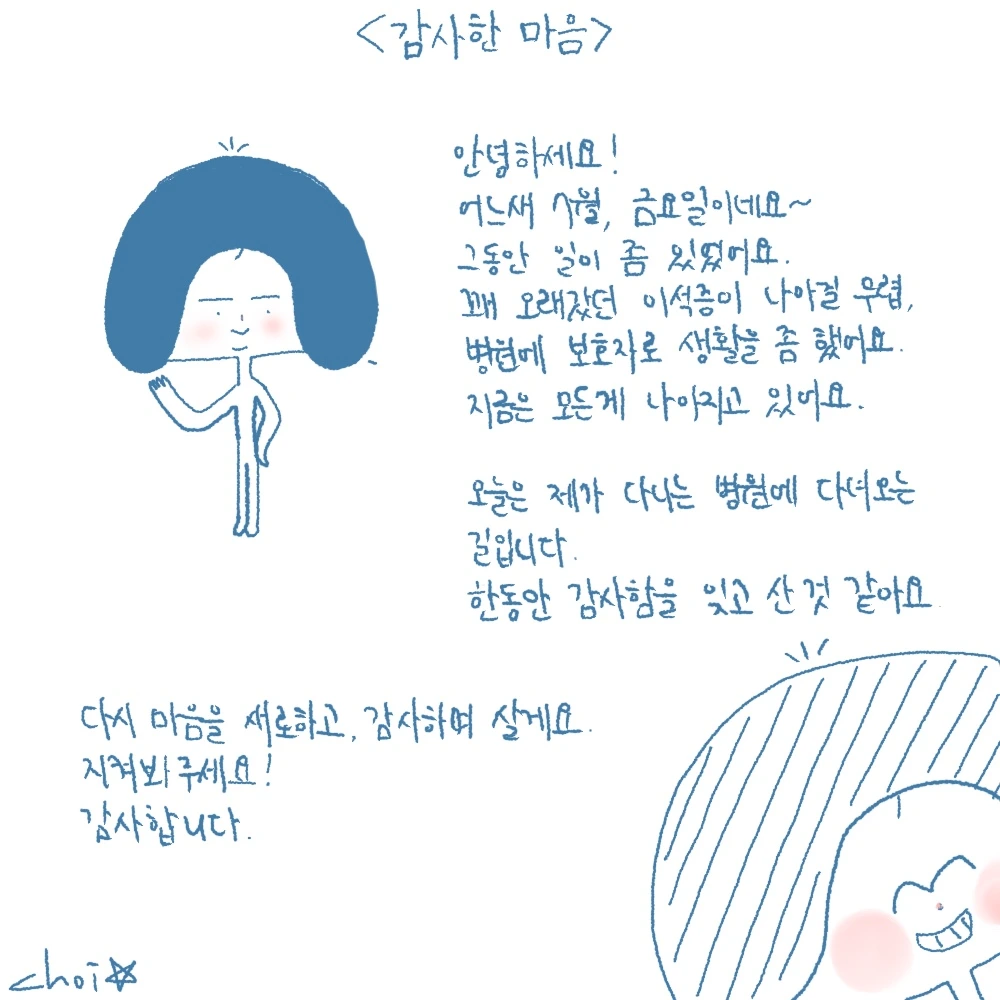 <감사한 마음>
안녕하세요!
어느새 9월, 금요일이네요~
그동안 일이 좀 있었어요.
꽤 오래갔던 이석증이 나아질 무렵,
병원에 보호자로 생활을 좀 했어요.
지금은 모든게 나아지고 있어요.
오늘은 제가 다니는 병원에 다녀오는
길입니다.
한동안 감사함을 잊고 산 것 같아요.
다시 마음을 새로하고, 감사하며 살게요.
지켜봐주세요!
감사합니다.
choi